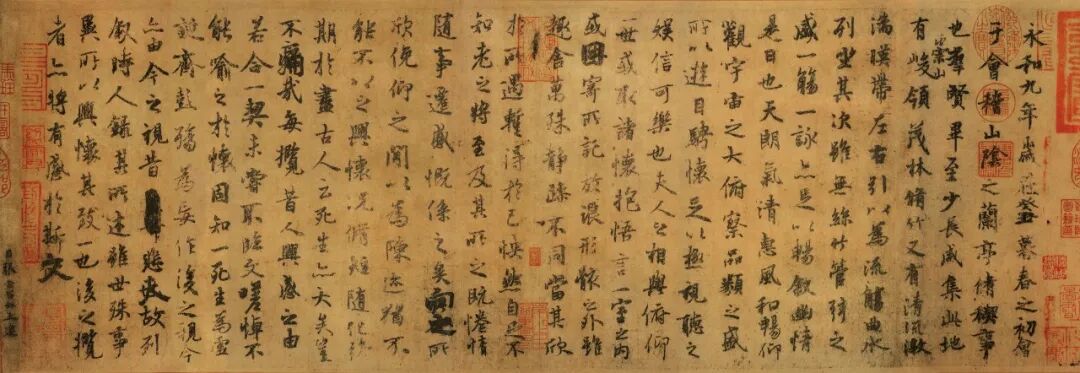 永和九年歲在癸丑暮春之初會
于會稽山陰之蘭亭脩稧事
也羣賢畢至少長咸集此地
有崇山峻領茂林脩竹又有清流激
湍暎帶左右引以為流觴曲水
列坐其次雖無絲竹管弦之
盛一觴一詠亦足以暢叙幽情
是日也天朗氣清惠風和暢仰
觀宇宙之大俯察品類之盛
所以遊目騁懷足以極視聽之
娛信可樂也夫人之相與俯仰
一世或取諸懷抱悟言一室之内
或因寄所託放浪形骸之外雖
趣舍萬殊靜躁不同當其欣
於所遇暫得於己怏然自足不
知老之將至及其所之既惓情
隨事遷感慨係之矣向之所
欣俛仰之閒以為陳迹猶不
能不以之興懷況脩短隨化終
期於盡古人云死生亦大矣豈
不痛哉每攬昔人興感之由
若合一契未嘗不臨文嗟悼不
能喻之於懷固知一死生為虛
誕齊彭殤為妄作後之視今
亦由今之視昔悲夫故列
叙時人錄其所述雖世殊事
異所以興懷其致一也後之攬
者亦將有感於斯文